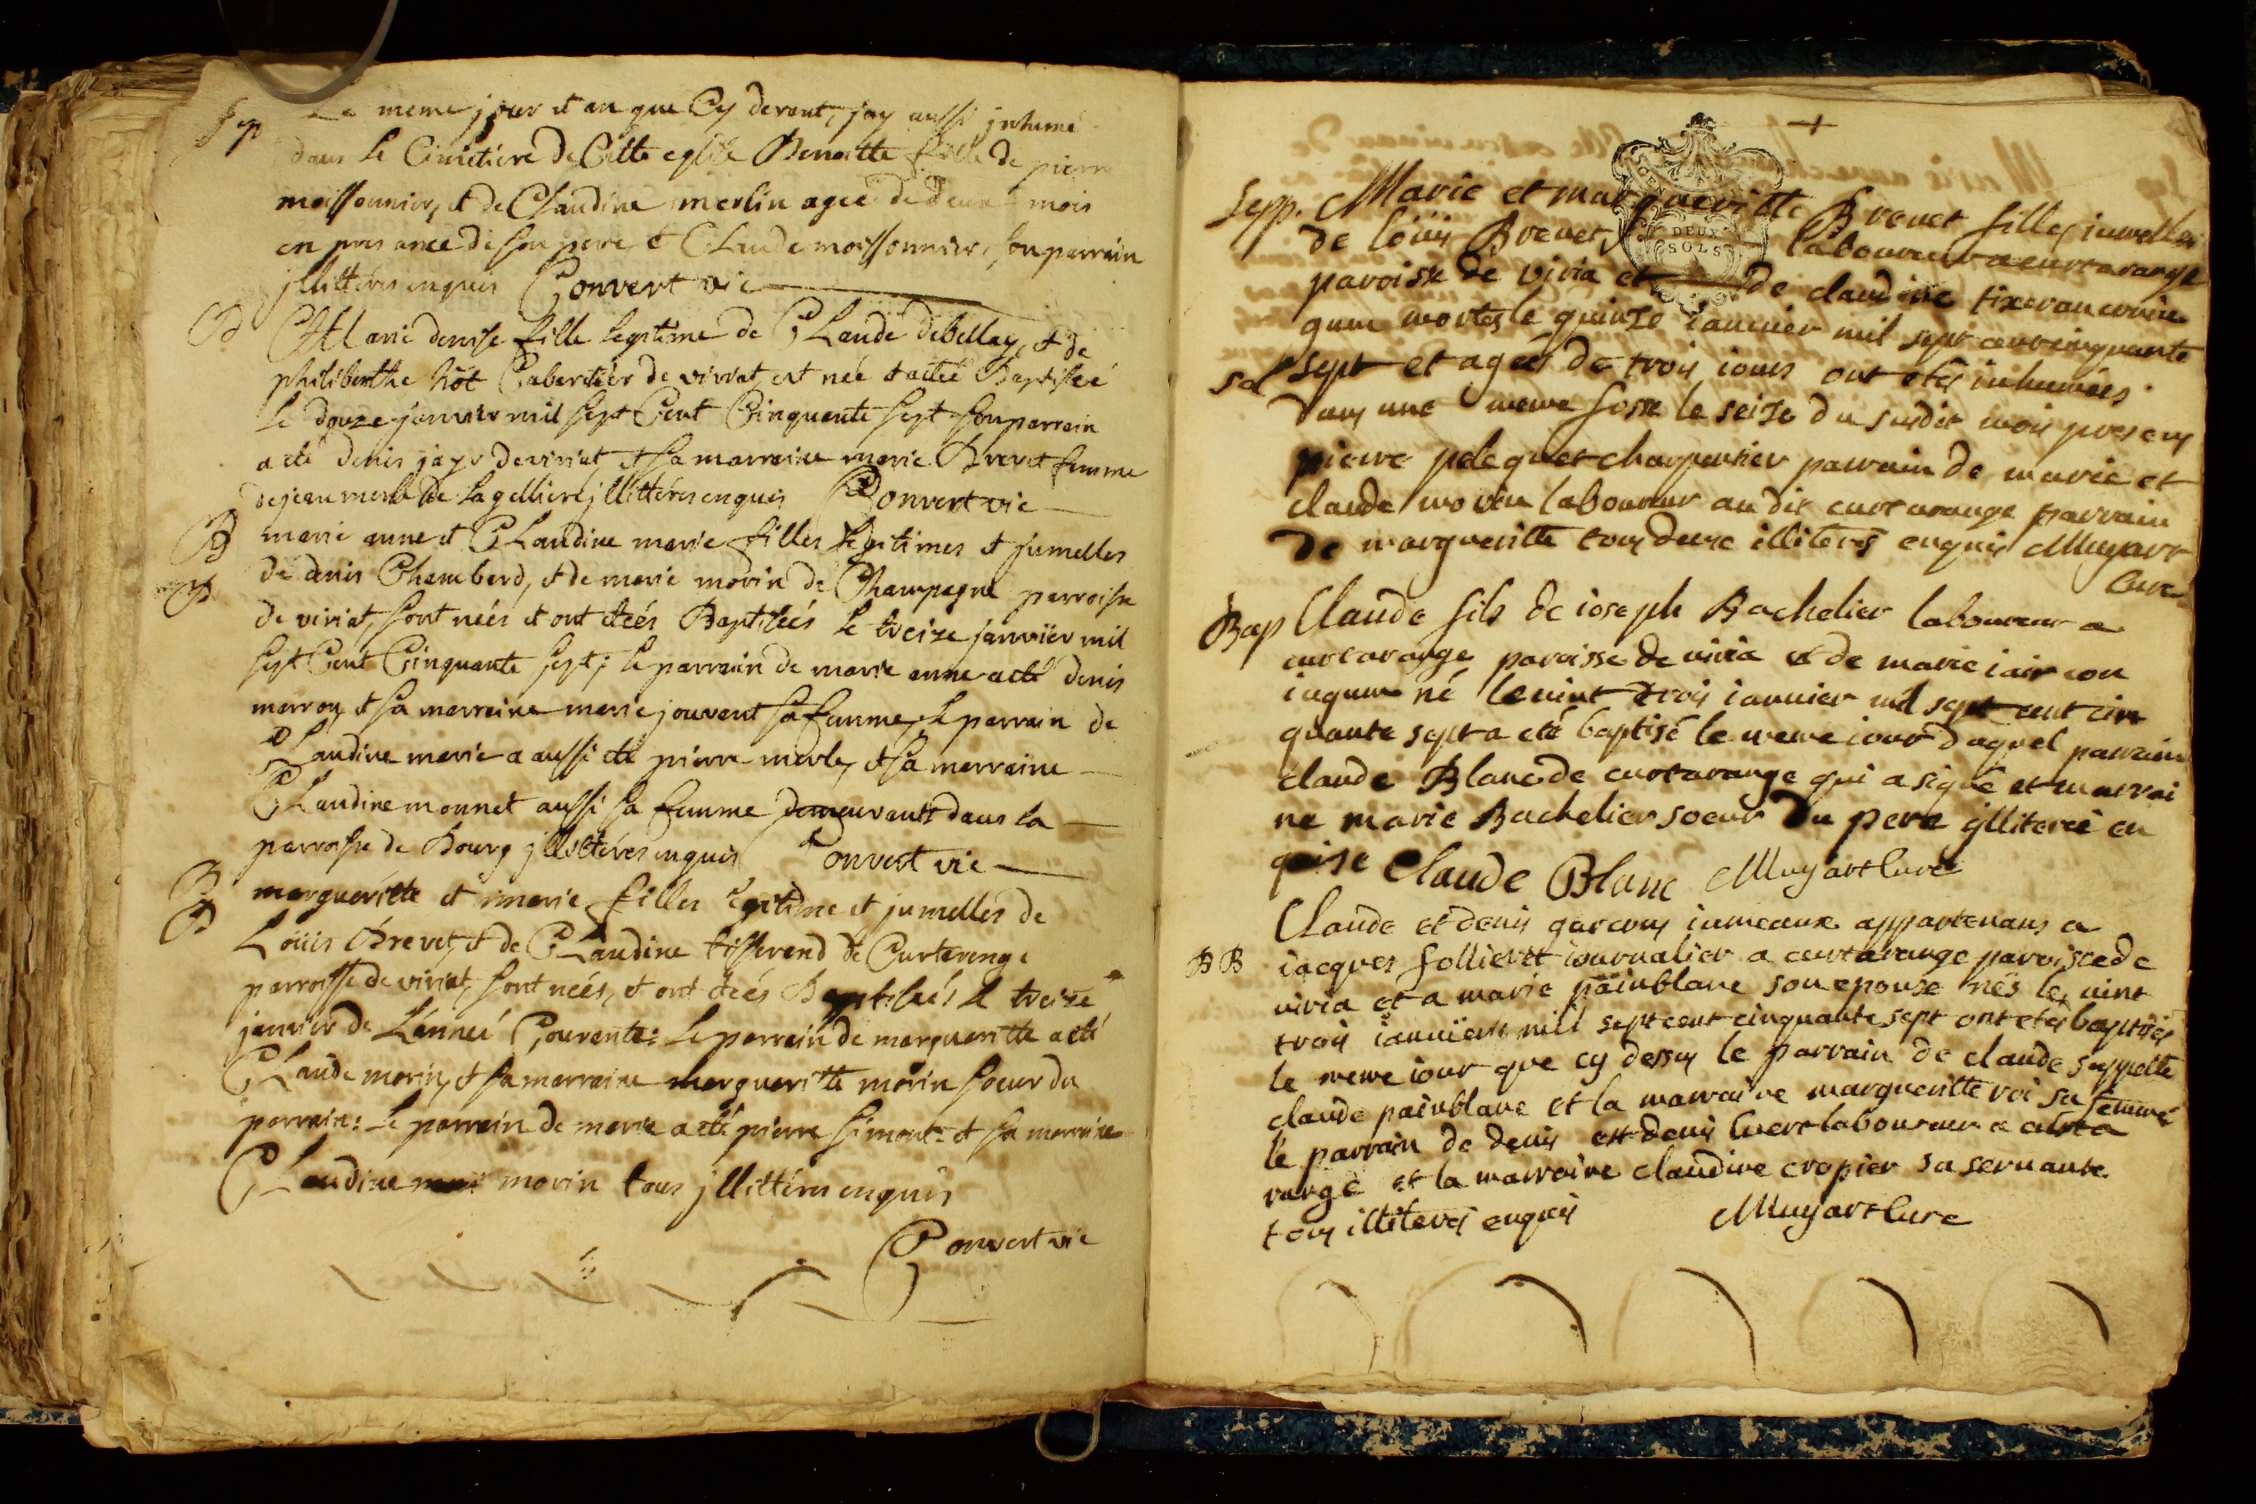 Sep Le meme jour et an que Cy devant, jay aussi jnhumé
dans le Cimetiere de Cette eglise Benoitte fille de pierre
moissonnier, et de Claudine merlin agee de deux mois
en presance de son pere et Claude moissonnier, son parrain
jllittéres enquis Convert vic
B Marie denise fille legitime de Claude debellay, et de
philiberthe hôt Cabertier de viriat, est née et a été Baptiseé
le douze janvier mil sept Cent Cinquante sept son parrain
a été denis jayr de viriat et sa marraine marie Brevet femme
de jean merle de la gelliere jllittéres enquis Convert vic
B marie anne et Claudine marie filles legitimes et jumelles
B de denis Chambard, et de marie morin de Champagne parroisse
de viriat, sont neés et ont eteés Baptiseés le treize janvier mil
sept Cent Cinquante sept; le parrain de marie anne a eté denis
marron, et sa marraine marie jouvent sa femme, le parrain de
Claudine marie a aussi été pierre merle, et sa marraine
Claudine monnet aussi sa femme demeurants dans la
parroisse de Bourg jllittérés enquis Convert vic
B margueritte et marie filles legitime et jumelles de
B Loüis Brevet, et de Claudine tisserend de Curtarenge
parroisse de viriat, sont neés, et ont eteés Baptiseés le treize
janvier de L'anneé Courante: le parrein de margueritte a eté
Claude morin, et sa marraine margueritte morin soeur du
parrain: le parrein de marie a été pierre simont et sa marraine
Claudine morin tous jllittéres enquis
Convert vic
DEUX
SOLS
Sepp. Marie et margueritte Brevet filles iumelles
de loüis Brevet laboureur a curtarange
paroisse de viria et de claudine tixeran
mortes le quinze ianuier mil sept cent cinquante
sol sept et agées de trois iours ont etés inhumées
dans une meme fosse le seize du susdit mois presens
pierre pelequet charpentier parrain de marie et
claude morin laboureur au dit curtarange parrain
de margueritte tous deux illiterés enquis Muyart
Curé
Bap Claude fils de ioseph Bachelier laboureur a
curtarange paroisse de viria et de marie
né le vint trois ianuier mil sept cent cin
quante sept a eté baptisé le meme iour duquel parrain
claude Blanc de curtarange qui a signé et marrai
ne marie Bachelier soeur du pere jlliterée en
quise Claude Blanc Muyart Curé
Claude et denis garcons iumeaux appartenans a
BB iacques follieret iournalier a curtarange paroisse de
viria et a marie painblanc son epouse nés le vint
trois ianuier mil sept cent cinquante sept ont etés baptisés
le meme iour que cy dessus le parrain de claude s'appelle
claude painblanc et la marraine margueritte roi sa femme
le parrain de denis est denis laboureur a curta
range et la marraine claudine cropier sa seruante
tous illiterés enquis Muyart Curé